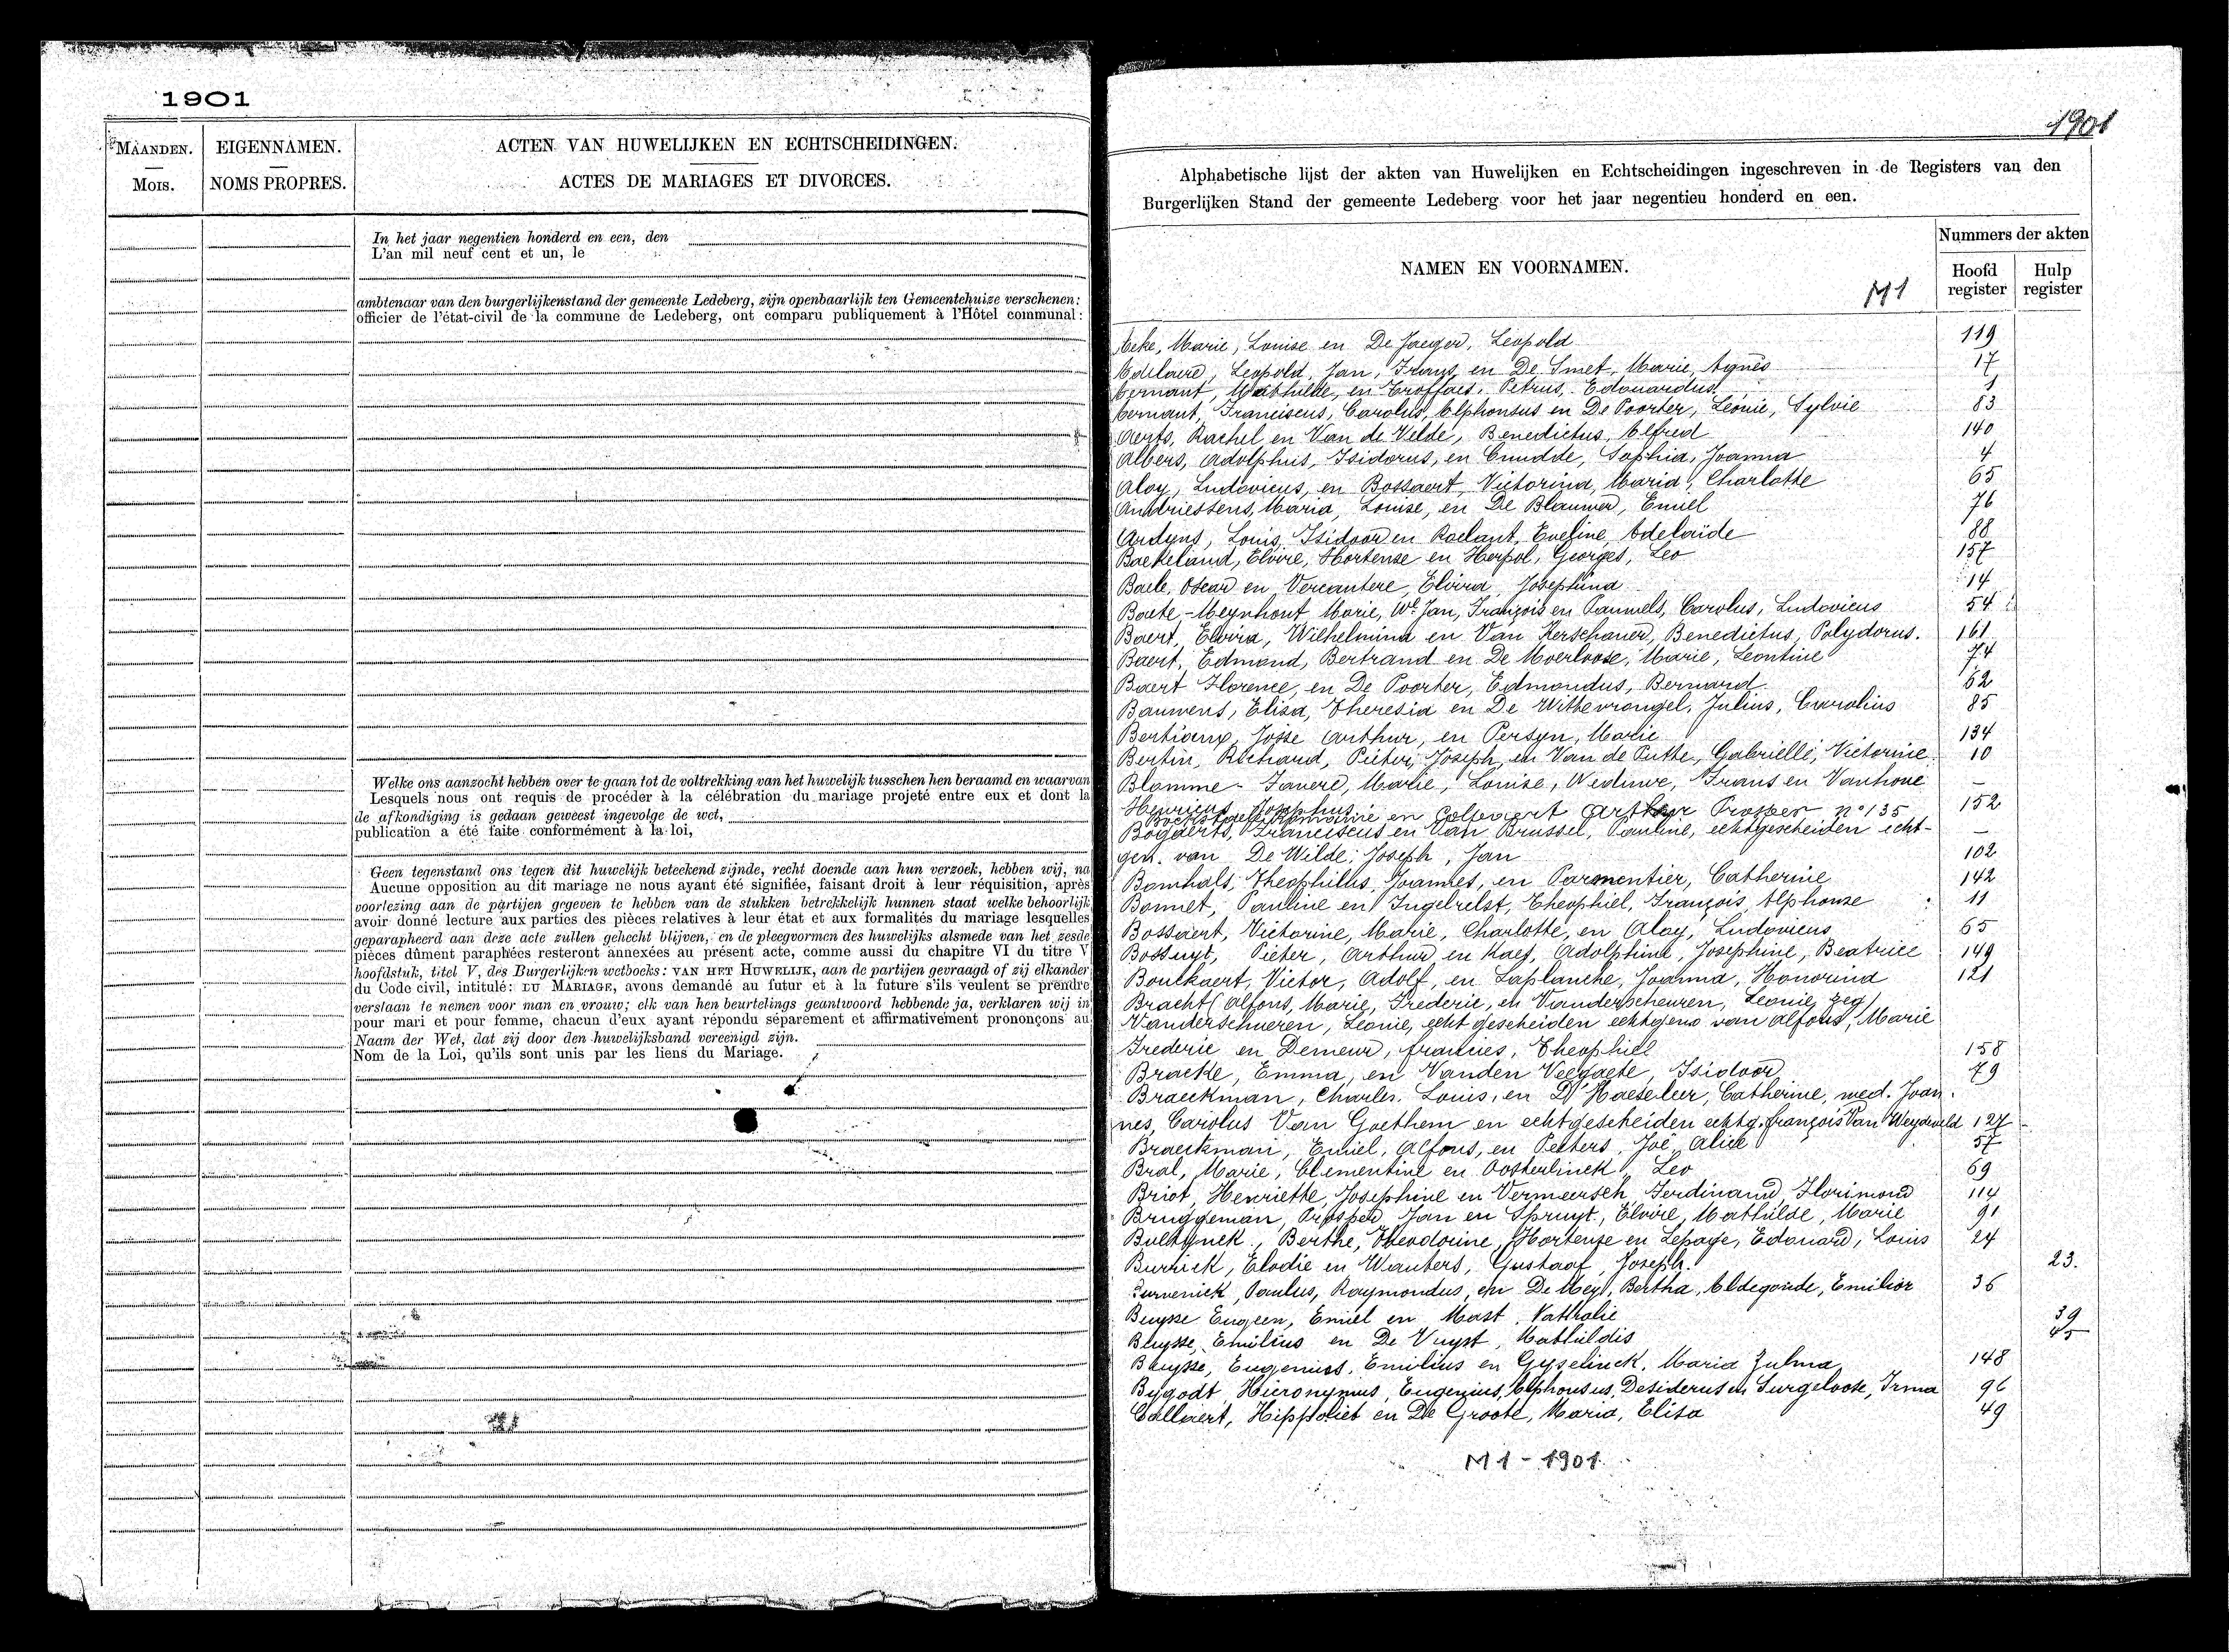 1901
MAANDEN.
Mois.
EIGENNAMEN.
NOMS PROPRES.
ACTEN VAN HUWELIJKEN EN ECHTSCHEIDINGEN.
ACTES DE MARIAGES ET DIVORCES.
In het jaar negentien honderd en een, den
L'an mil neuf cent et un, le
ambtenaar van den burgerlijkenstand der gemeente Ledeberg, zijn openbaarlijk ten Gemeentehuize verschenen:
officier de l'état-civil de la commune de Ledeberg, ont comparu publiquement à l'Hôtel communal:
Welke ons aanzocht hebben over te gaan tot de voltrekking van het huwelijk tusschen hen beraamd en waarvan
Lesquels nous ont requis de procéder à la célébration du mariage projeté entre eux et dont la
de afkondiging is gedaan geweest ingevolge de wet,
publication a été faite conformément à la loi,
Geen tegenstand ons tegen dit huwelijk beteekend zijnde, recht doende aan hun verzoek, hebben wij, na
Aucune opposition au dit mariage ne nous ayant été signifiée, faisant droit à leur réquisition, après
voorlezing aan de partijen gegeven te hebben van de stukken betrekkelijk hunnen staat welke behoorlijk
avoir donné lecture aux parties des pièces relatives à leur état et aux formalités du mariage lesquelles
geparapheerd aan deze acte zullen gehecht blijven, en de pleegvormen des huwelijks alsmede van het zesde
pièces dûment paraphées resteront annexées au présent acte, comme aussi du chapitre VI du titre V
hoofdstuk, titel V, des Burgerlijken wetboeks: VAN HET HUWELIJK, aan de partijen gevraagd of zij elkander
du Code civil, intitulé: DU MARIAGE, avons demandé au futur et à la future s'ils veulent se prendre
verstaan te nemen voor man en vrouw; elk van hen beurtelings geantwoord hebbende ja, verklaren wij in
pour mari et pour femme, chacun d'eux ayant répondu séparement et affirmativement prononçons au
Naam der Wet, dat zij door den huwelijksband vereenigd zijn.
Nom de la Loi, qu'ils sont unis par les liens du Mariage.
1901
Alphabetische lijst der akten van Huwelijken en Echtscheidingen ingeschreven in de Registers van den
Burgerlijken Stand der gemeente Ledeberg voor het jaar negentieu honderd en een.
NAMEN EN VOORNAMEN.
M1
Nummers der akten
Hoofd register
Hulp register
Aeke, Marie, Louise en De Jaeger, Leopold 119
Leopold, Jan, Frans en De Smet, Marie, Agnès 17
Aernaut, Mathilde, en Petrus, Edouardus 1
Aernaut, Franciscus, Carolus, Alphonsus en De Poorter, Léonie, Sylvie 83
Aerts, Rachel en Van de Velde, Benedictus, Alfred 140
Albers, Adolphus, Isidorus, en Cnudde, Sophia, Joanna 4
Aloy, Ludovicus, en Bossaert, Victorina, Maria, Charlotte 65
Andriessens, Maria, Louise, en De Blauwer, Emiel 76
Ardyns, Louis, Isidoor en Roelant, Eveline, Adelaïde 88
Baekeland, Elvire, Hortense en Herpol, Georges, Leo 157
Baele, Oscar en Vercautere, Elvira, Josephina 14
Baete-Meynhout Marie, We Jan, François en Pauwels, Carolus, Ludovicus 54
Baert, Elvira, Wilhelmina en Van Kerschaver, Benedictus, Polydorus. 161
Baert, Edmond, Bertrand en De Moerloose, Marie, Leontine 74
Baert Florence, en De Poorter, Edmondus, Bernard 62
Bauwens, Elisa, Theresia en De Wittevrongel, Julius, Carolius 85
Bertiaux, Josse Arthur, en Persyn, Marie 134
Bertin, Richard, Pieter, Joseph, en Van de Putte, Gabrielle, Victorine 10
Blomme-Tavere, Marie, Louise, Weduwe, Frans en Vanhove —
Henricus, Josephus 152
en Colpaert Arthur Prosper n° 135
Bogaerts, Franciscus en Van Brussel, Pauline, echtgescheiden echt- —
gen. van De Wilde, Joseph, Jan 102
Bomhals, Theophilus, Joannes, en Parmentier, Catherine 142
Bonnet, Pauline en Ingelrelst, Theophiel, François, Alphonse 11
Bossaert, Victorine, Marie, Charlotte, en Aloy, Ludovicus 65
Bossuyt, Pieter, Arthur, en Kaes, Adolphina, Josephine, Beatrice 149
Boutkaert, Victor, Adolf, en Laplanche, Joanna, Honorina 121
Bracht (Alfons, Marie, Frederic, en Vanderscheuren, Leonie, zeg/
Vanderschueren, Léonie, echtgescheiden echtgeno van Alfons, Marie
Frederic en Demeur, francies, Theophiel 158
Bracke, Emma, en Vanden Veegaete, Isidoor 79
Braeckman, Charles, Louis, en D'Haeseleer, Catherine, wed. Joan-
nes, Carolus Van Goethem en echtgescheiden echtg. françois Van Weydeveld 127
Braeckman, Emiel, Alfons, en Peeters, Joë, Alice 57
Bral, Marie, Clementine en Oosterlinck, Leo 69
Briot, Henriette, Josephine en Vermeersch, Ferdinand, Florimond 114
Bruggeman, Prosper, Jan en Spruyt, Elvire, Mathilde, Marie 91
Bultynck, Berthe, Theodorine, Hortense en Lepage, Edouard, Louis 24
Burnick, Elodie en Wauters, Gustaaf, Joseph. 23.
Paulus, Raymondus, en De Mey, Bertha, Aldegonde, Emilior 36
Buysse Eugeen, Emiel en Mast, Nathalie 39
Buysse, Emilius en De Vuyst, Mathildis 45
Buysse, Eugenius, Emilius en Gyselinck, Maria Zulma 148
Bygodt, Hieronymus, Eugenius, Alphonsus, Desiderus en Surgeloose, Irma 96
Callaert, Hippoliet en De Groote, Maria, Elisa 49
M1 - 1901.